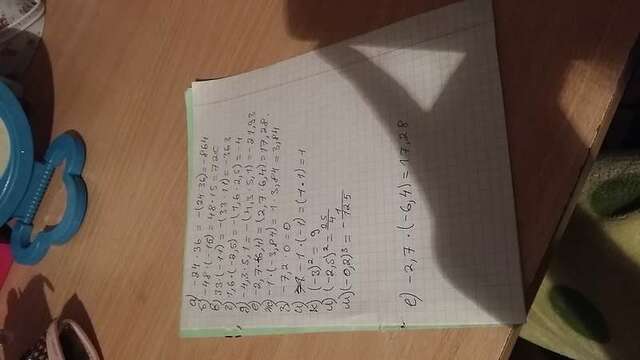 а) -24 · 36 = -(24·36) = -864
б) -48·(-15) = 48·15 = 720
в) 33·(-11) = -(33·11) = -363
г) 1,6·(-2,5) = -(1,6·2,5) = -4
д) -4,3·5,1 = -(4,3·5,1) = -21,93
е) -2,7·6,4) = (2,7·6,4) = 17,28.
ж) -1·(-3,84) = 1·3,84 = 3,84
з) -7,2·0 = 0
и) -1·(-1) = (1·1) = 1
к) (-3)² = 9
л) (-2,5)² = 25/4
м) (-0,2)³ = -1/125
е) -2,7·(-6,4) = 17,28